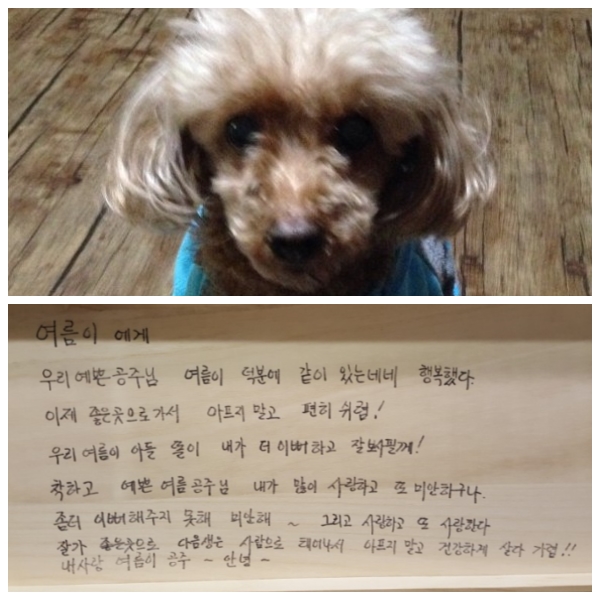 여름이 에게
우리 예쁜공주님 여름이 덕분에 같이 있는네네 행복했다.
이제 좋은곳으로가서 아프지 말고 편히 쉬렴!
우리 여름이 아들 똘이 내가 더 이뻐하고 잘 보살필께!
착하고 예쁜 여름공주님 내가 많이 사랑하고 또 미안하구나.
좀더 이뻐해주지 못해 미안해 ~ 그리고 사랑하고 또 사랑한다
잘가 좋은곳으로 다음생은 사람으로 태어나서 아프지 말고 건강하게 살다 가렴!!
내사랑 여름이 공주 ~ 안녕 ~